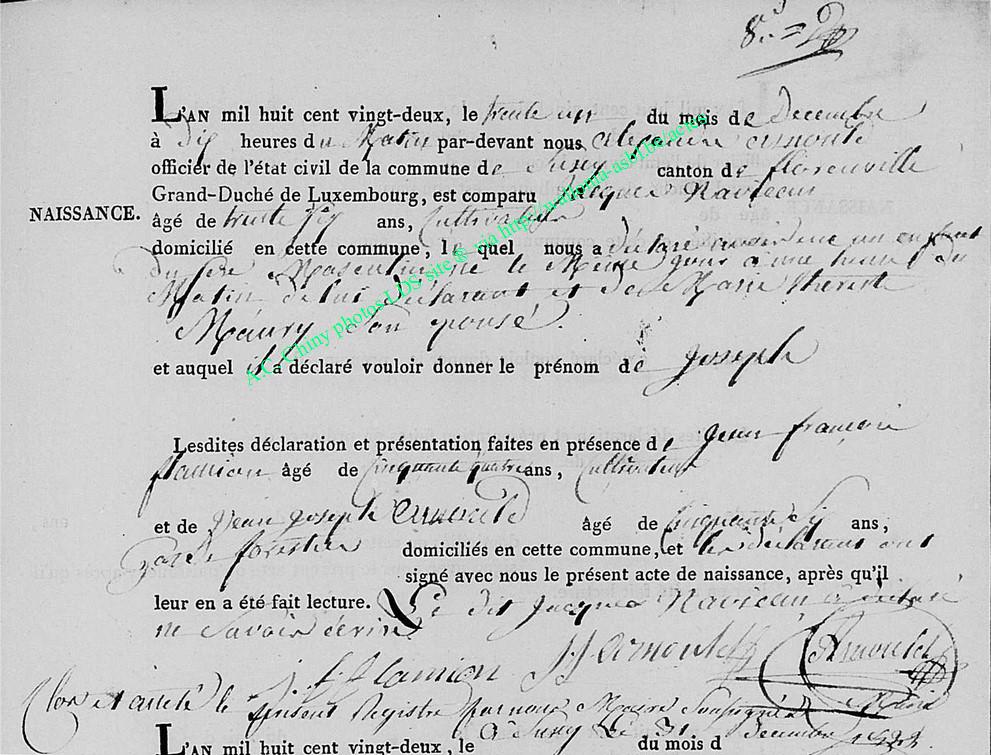 L'AN mil huit cent vingt-deux, le trente un du mois de Decembre
à dix heures du Matin par-devant nous Alexandre Arnould
officier de l'état civil de la commune de Suxy canton de florenville
Grand-Duché de Luxembourg, est comparu Jacques Naviaux
NAISSANCE.
âgé de trente six ans, Cultivateur
domicilié en cette commune, le quel nous a déclaré un enfant
du sexe Masculin né le Même jour à une heure du
Matin de lui déclarant et de Marie therese
Maury Son epouse.
et auquel il a déclaré vouloir donner le prénom de Joseph
Lesdites déclaration et présentation faites en présence de Jean françois
flamion âgé de Cinquante quatre ans, Cultivateur
et de Jean Joseph Arnould âgé de Cinquante six ans,
Garde forestier domiciliés en cette commune, et les déclarans ont
signé avec nous le présent acte de naissance, après qu'il
leur en a été fait lecture. Le dit Jacques Naviaux a déclaré
ne Savoir écrire
J f flamion JJ arnould Arnould
Clos et arreté le présent Registre par nous Maire Soussigné
à Suxy le 31 decembre
L'AN mil huit cent vingt-deux, le du mois d
A.C. Chiny photos LDS site @ via http://wallonia-asbl.be/actes/